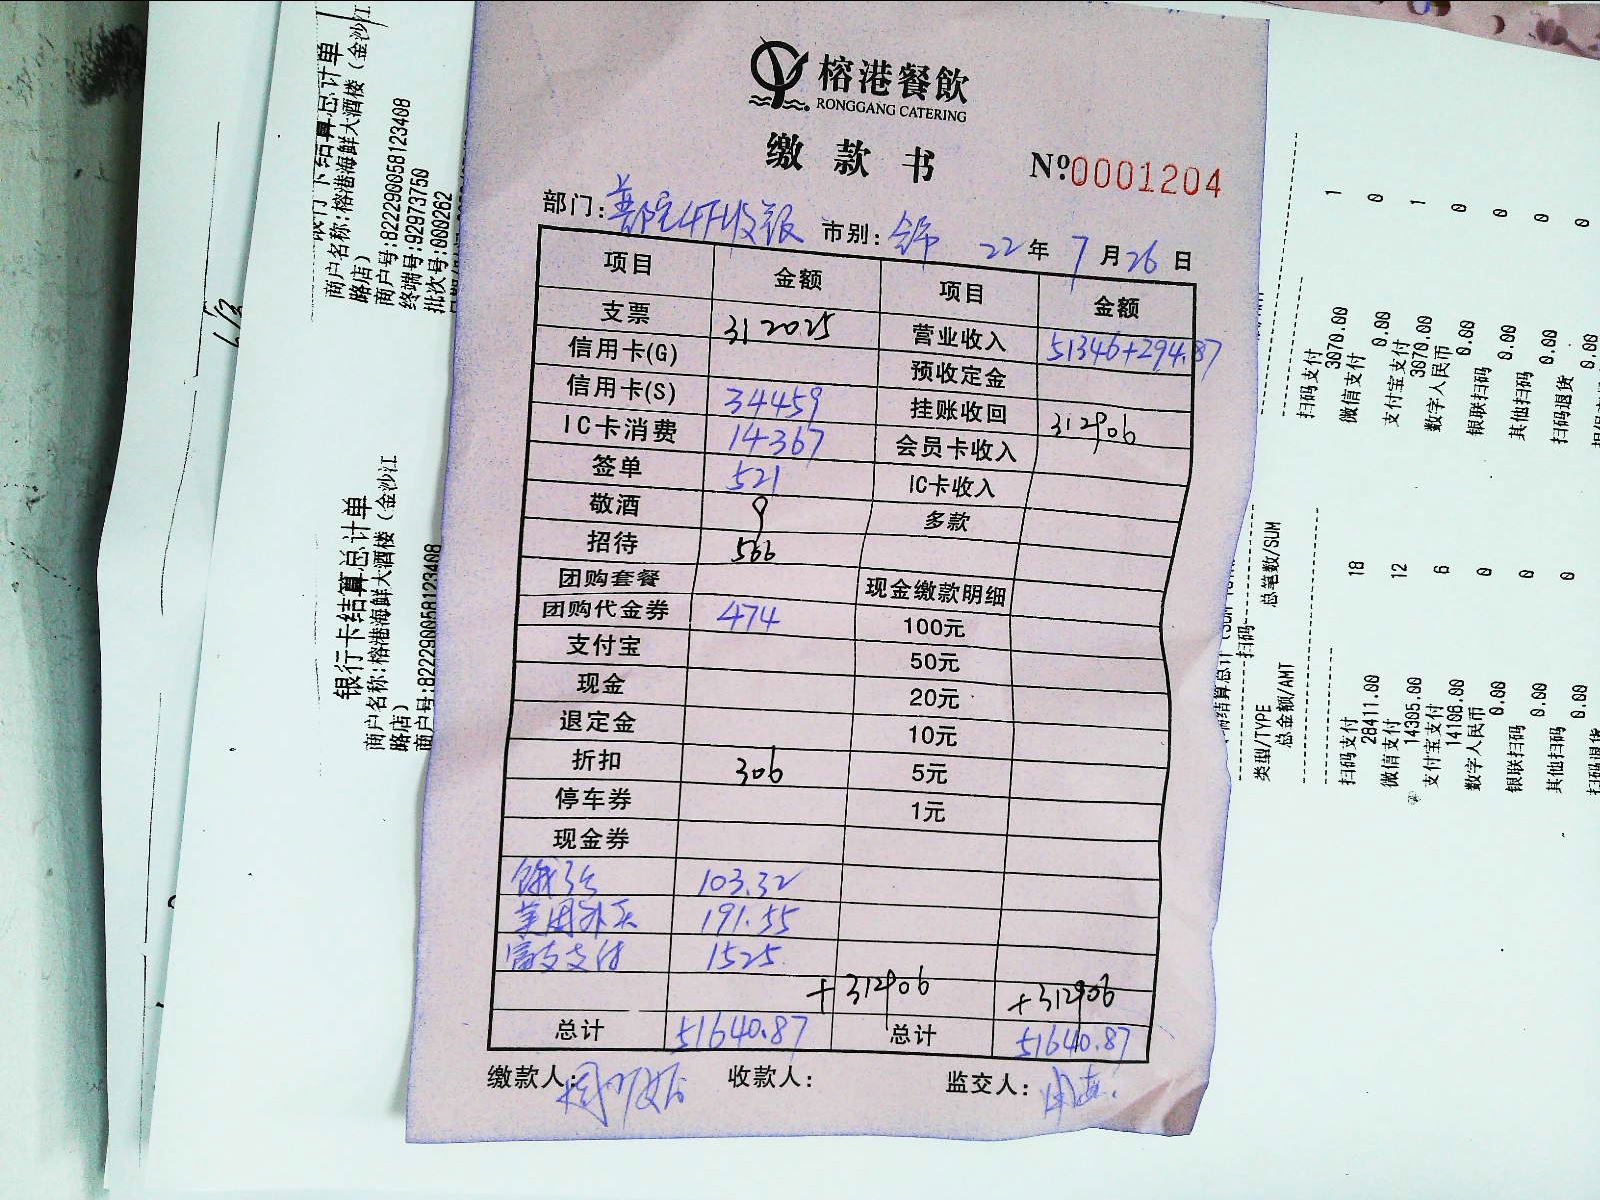 榕港餐飲
RONGGANG CATERING
缴款书
Nº0001204
部门: 市别: 22年7月26日
项目 金额 项目 金额
支票 312025 营业收入 51346+294.87
信用卡(G) 预收定金
信用卡(S) 34459 挂账收回 312906
IC卡消费 14367 会员卡收入
签单 521 IC卡收入
敬酒 9 多款
招待 566
团购套餐 现金缴款明细
团购代金券 474 100元
支付宝 50元
现金 20元
退定金 10元
折扣 306 5元
停车券 1元
现金券
饿了么 103.32
美团外卖 191.55
支付 1525
+312906 +312906
总计 51640.87 总计 51640.87
缴款人: 收款人: 监交人:
银行卡结算总计单
商户名称:榕港海鲜大酒楼(金沙江
路店)
商户号:822290058123408
终端号:92973750
批次号:000262
银行卡结算总计单
商户名称:榕港海鲜大酒楼(金沙江
路店)
商户号:822290058123408
扫码支付 1
3070.00
微信支付 0
0.00
支付宝支付 1
3070.00
数字人民币 0
0.00
银联扫码 0
0.00
其他扫码 0
0.00
扫码退货 0
0.00
类型/TYPE 总笔数/SUM
总金额/AMT
扫码
扫码支付 18
28411.00
微信支付 12
14305.00
支付宝支付 6
14106.00
数字人民币 0
0.00
银联扫码 0
0.00
其他扫码 0
0.00
扫码退货